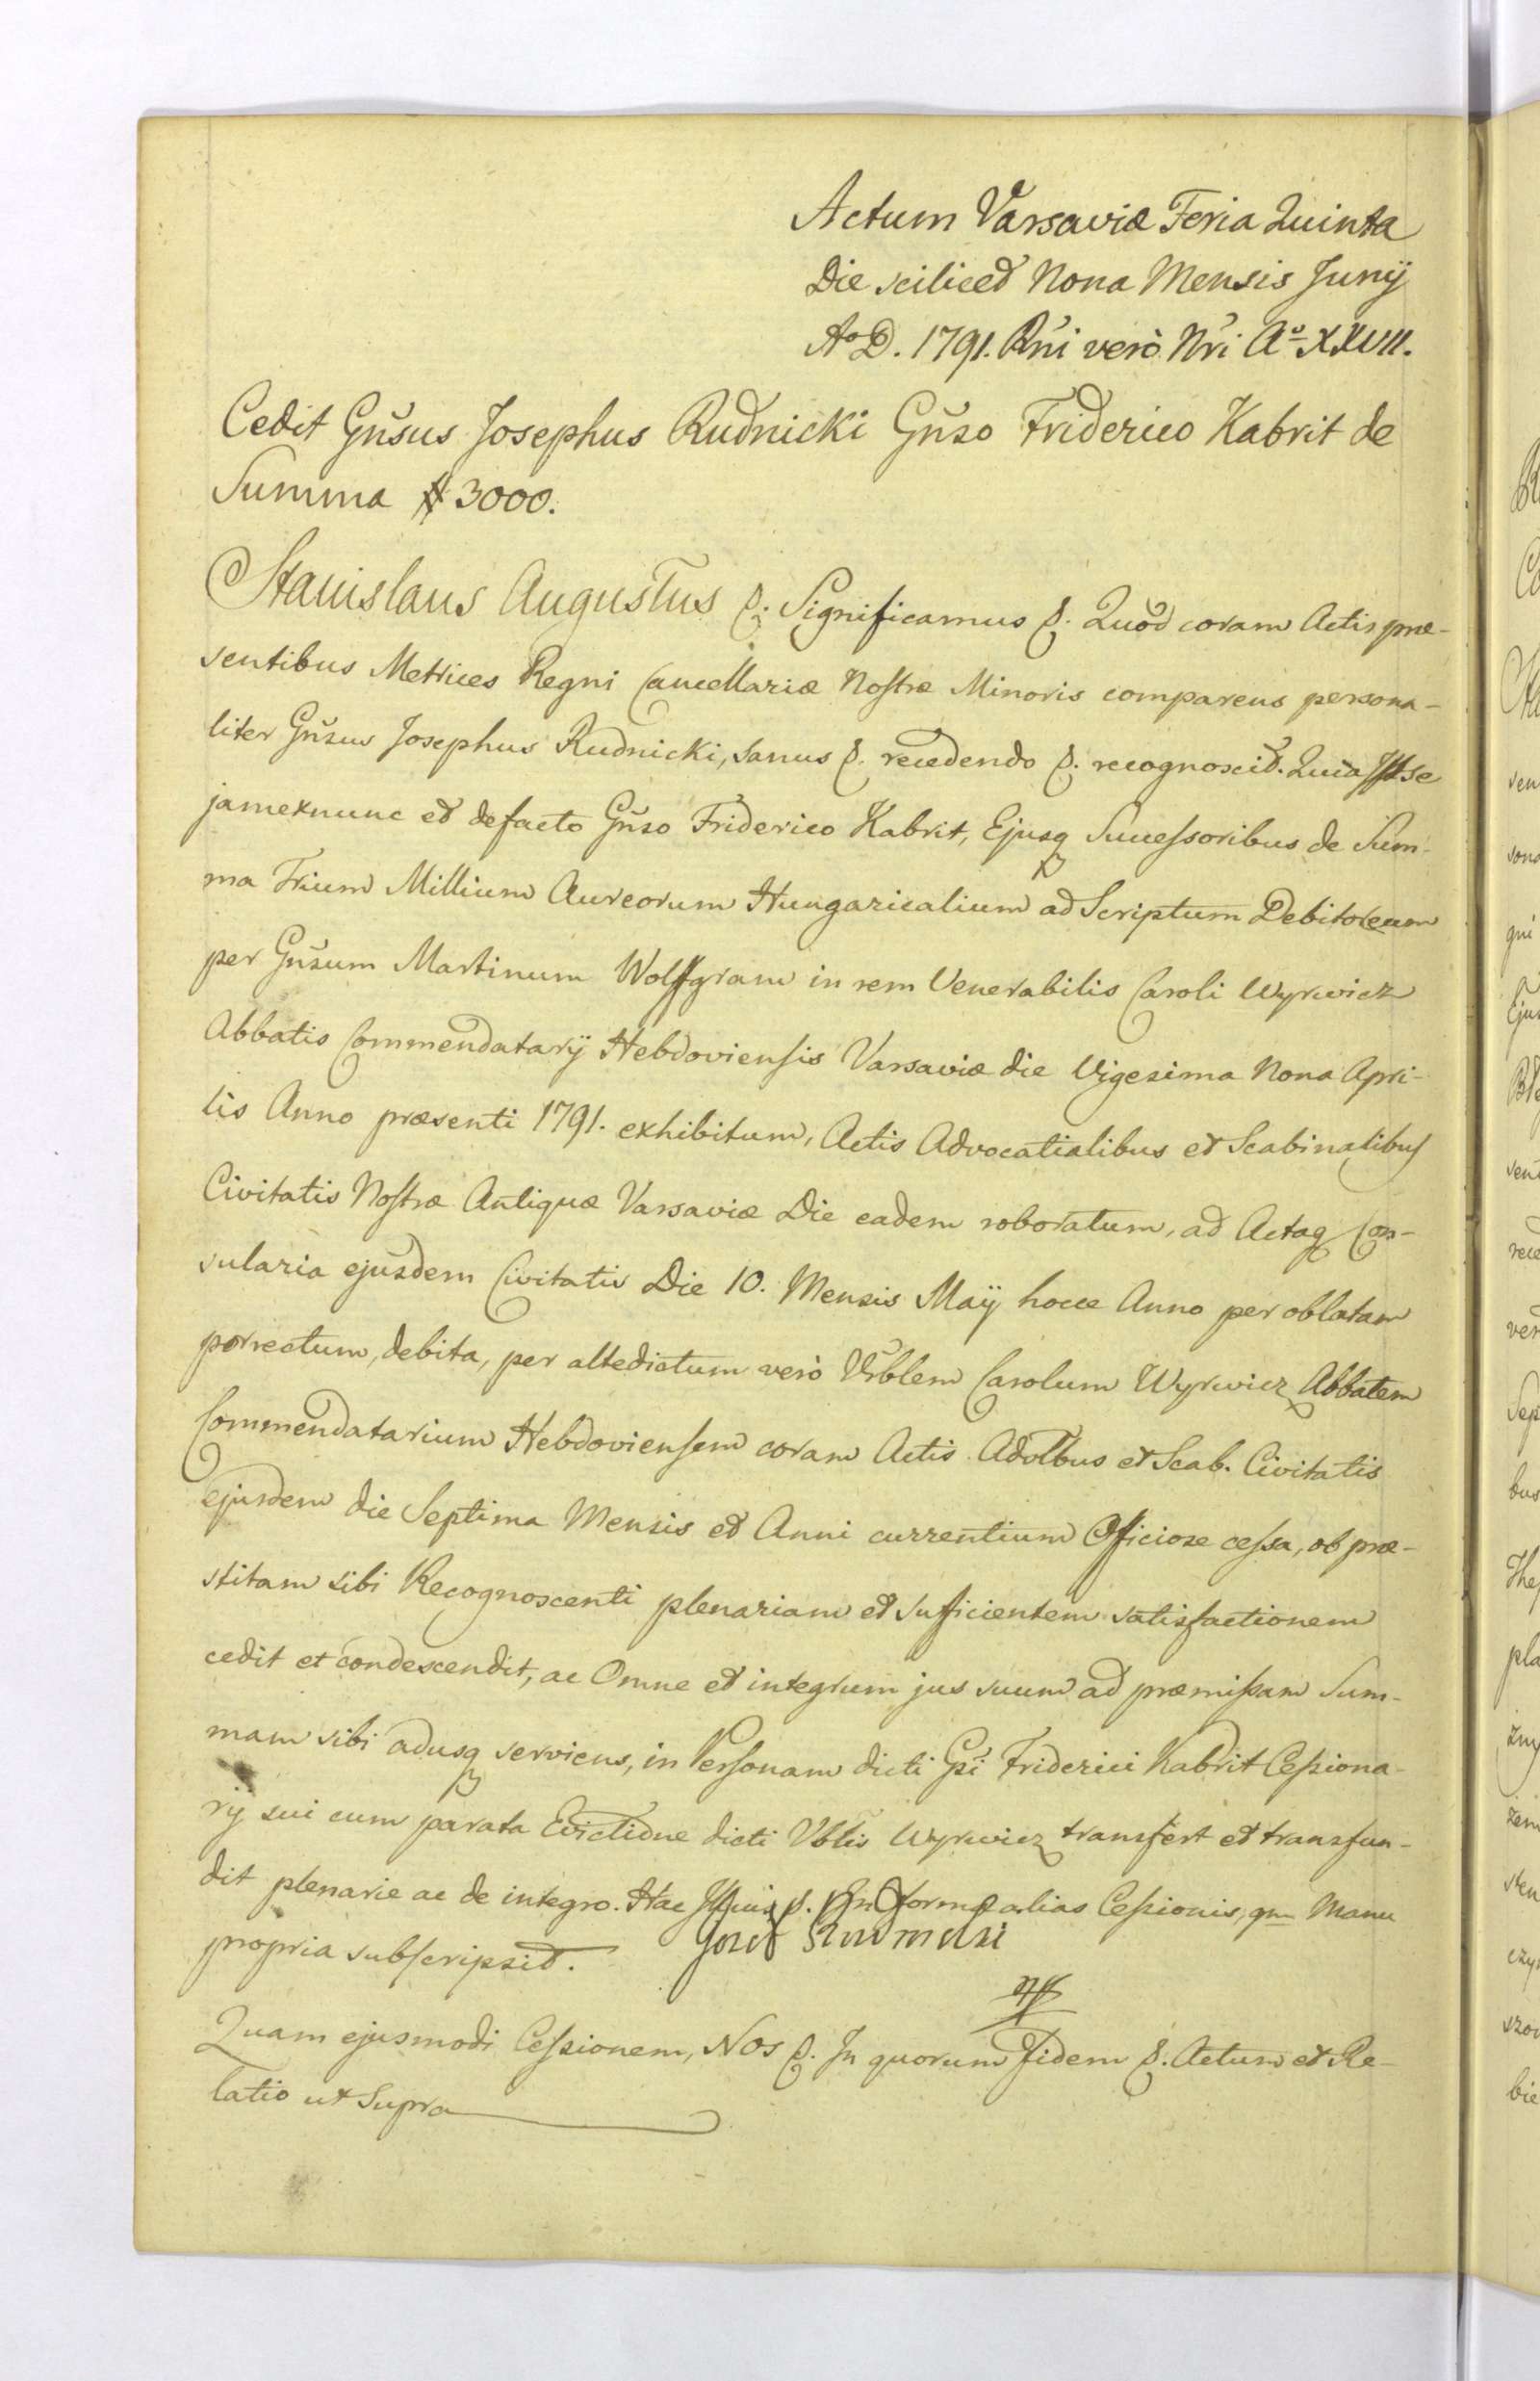 Actum Varsaviæ Feria Quinta
Die scilicet Nona Mensis Junÿ
Ao D. 1791. Rñi verò Nri Aº XXVII.
Cedit Gñsus Josephus Rudnicki Gñso Friderico Kabrit de
Summa # 3000.
Stanislaus Augustus &. Significamus &. Quod coram Actis præ-
sentibus Metrices Regni Cancellariæ Nostræ Minoris comparens persona-
liter Gñsus Josephus Rudnicki, sanus &. recedendo &. recognoscit. Quia Ipse
jamexnunc et defacto Gñso Friderico Kabrit, Ejusq Successoribus de Sum-
ma Trium Millium Aureorum Hungaricalium ad Scriptum Debitoreum
per Gñsum Martinum Wolffgram in rem Venerabilis Caroli Wyrwicz
Abbatis Commendatarÿ Hebdoviensis Varsaviæ die Vigesima Nona Apri-
lis Anno præsenti 1791. exhibitum, Actis Advocatialibus et Scabinalibus
Civitatis Nostræ Antiquæ Varsaviæ Die eadem roboratum, ad Actaq Con-
sularia ejusdem Civitatis Die 10. Mensis Maÿ hocce Anno per oblatam
porrectum, debita, per altedictum verò Vrblem Carolum Wyrwicz Abbatem
Commendatarium Hebdoviensem coram Actis Advlbus et Scab. Civitatis
ejusdem die Septima Mensis et Anni currentium Officiose cessa, ob præ-
stitam sibi Recognoscenti plenariam et sufficientem satisfactionem
cedit et condescendit, ac Omne et integrum jus suum ad præmissam Sum-
mam sibi adusq serviens, in Personam dicti Gsi Friderici Kabrit Cessiona-
rÿ sui cum parata Evictione dicti Vblis Wyrwicz transfert et transfun-
dit plenarie ac de integro. Hac &. forma alias Cessionis, qm Manu
propria subscripsit.
Quam ejusmodi Cessionem, Nos &. In quorum Fidem &. Actum et Re-
latio ut Supra